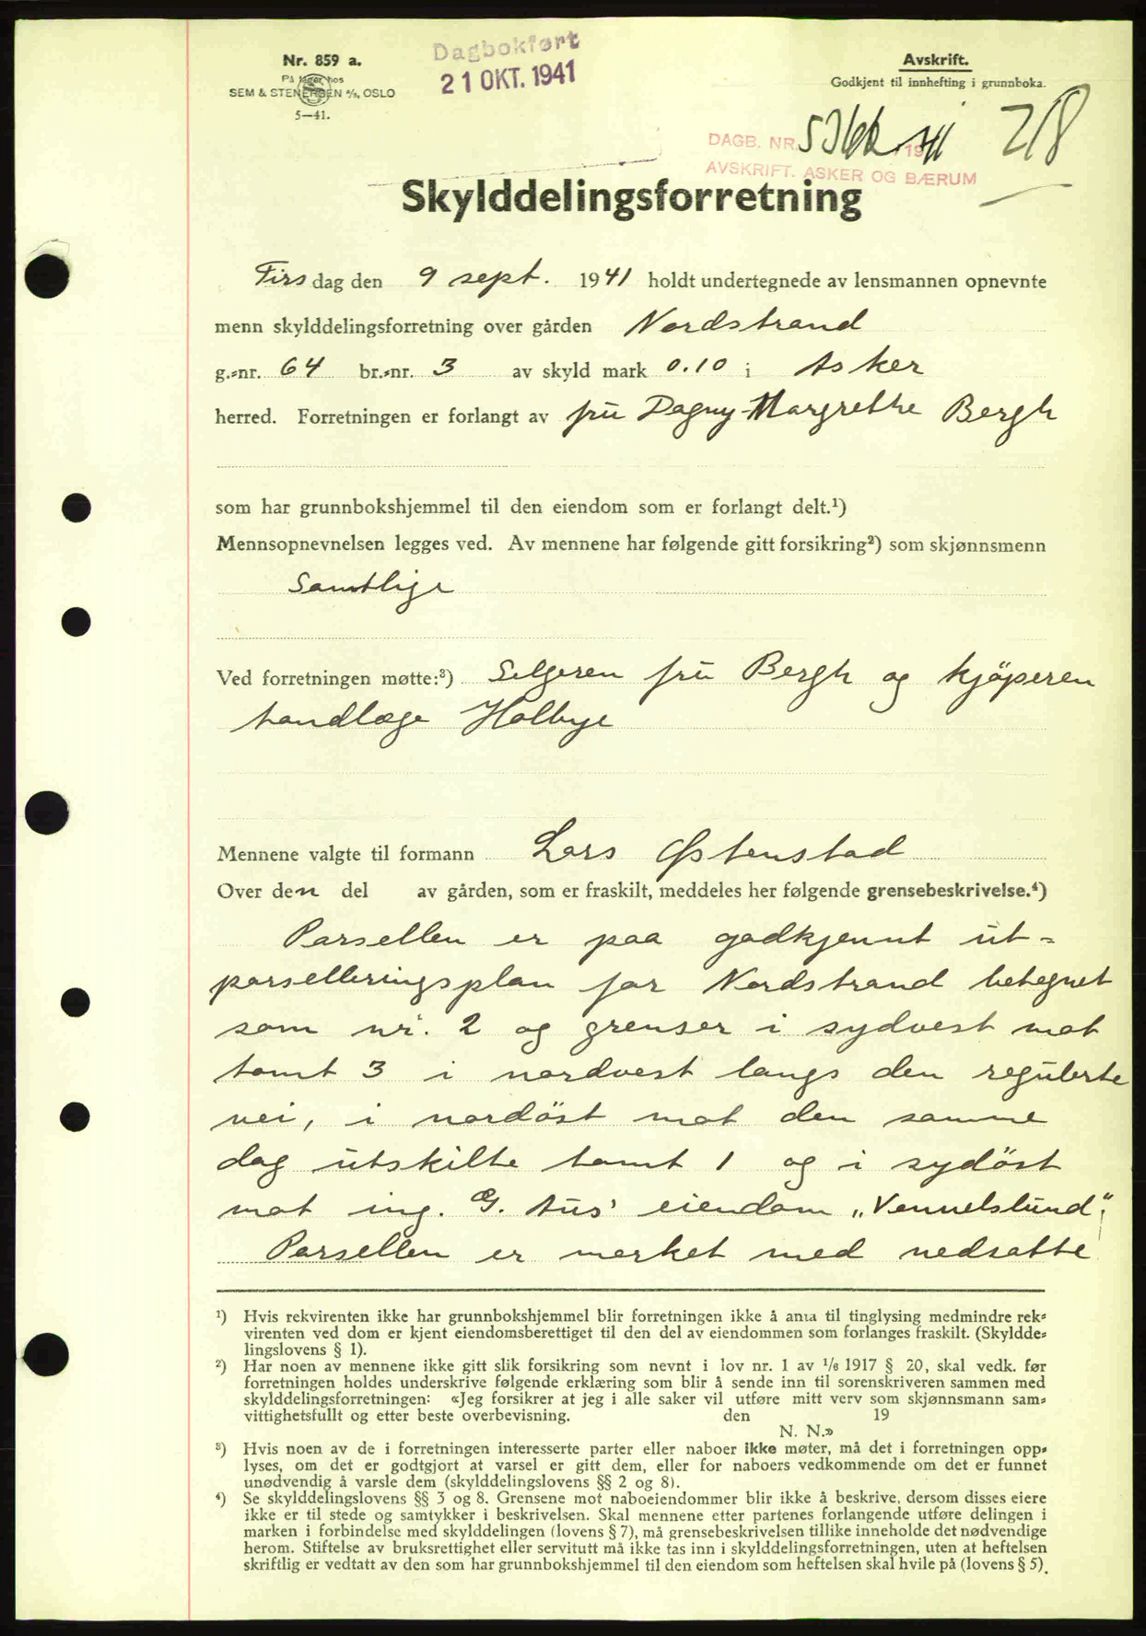 Nr. 859 a.
På lager hos
SEM & STENERSEN A/S, OSLO
5—41.
Dagbokført
21 OKT. 1941
Avskrift.
Godkjent til innhefting i grunnboka.
218
DAGB. NR. 5366 1941
AVSKRIFT. ASKER OG BÆRUM
Skylddelingsforretning
Tirsdag den 9 sept. 1941 holdt undertegnede av lensmannen opnevnte
menn skylddelingsforretning over gården Nordstrand
g.-nr. 64 br.-nr. 3 av skyld mark 0.10 i Asker
herred. Forretningen er forlangt av fru Dagny-Margrethe Bergh
som har grunnbokshjemmel til den eiendom som er forlangt delt.¹)
Mennsopnevnelsen legges ved. Av mennene har følgende gitt forsikring²) som skjønnsmenn
Samtlige
Ved forretningen møtte:³) Selgeren fru Bergh og kjöperen
tandlæge Holbye
Mennene valgte til formann Lars Østenstad
Over den del av gården, som er fraskilt, meddeles her følgende grensebeskrivelse.⁴)
Parsellen er paa godkjennt ut-
parselleringsplan for Nordstrand betegnet
som nr. 2 og grenser i sydvest mot
tomt 3 i nordvest langs den regulerte
vei, i nordöst mot den samme
dag utskilte tomt 1 og i sydöst
mot ing. G. Aus' eiendom „Vennelslund".
Parsellen er merket med nedsatte
¹) Hvis rekvirenten ikke har grunnbokshjemmel blir forretningen ikke å anta til tinglysing medmindre rek-
virenten ved dom er kjent eiendomsberettiget til den del av eiendommen som forlanges fraskilt. (Skyldde-
lingslovens § 1).
²) Har noen av mennene ikke gitt slik forsikring som nevnt i lov nr. 1 av 1/6 1917 § 20, skal vedk. før
forretningen holdes underskrive følgende erklæring som blir å sende inn til sorenskriveren sammen med
skylddelingsforretningen: «Jeg forsikrer at jeg i alle saker vil utføre mitt verv som skjønnsmann sam-
vittighetsfullt og etter beste overbevisning. den 19
N. N.»
³) Hvis noen av de i forretningen interesserte parter eller naboer ikke møter, må det i forretningen opp-
lyses, om det er godtgjort at varsel er gitt dem, eller for naboers vedkommende om det er funnet
unødvendig å varsle dem (skylddelingslovens §§ 2 og 8).
⁴) Se skylddelingslovens §§ 3 og 8. Grensene mot naboeiendommer blir ikke å beskrive, dersom disses eiere
ikke er til stede og samtykker i beskrivelsen. Skal mennene etter partenes forlangende utføre delingen i
marken i forbindelse med skylddelingen (lovens § 7), må grensebeskrivelsen tillike inneholde det nødvendige
herom. Stiftelse av bruksrettighet eller servitutt må ikke tas inn i skylddelingsforretningen, uten at heftelsen
skriftlig er vedtatt av den som har grunnbokshjemmel til den eiendom som heftelsen skal hvile på (lovens § 5).